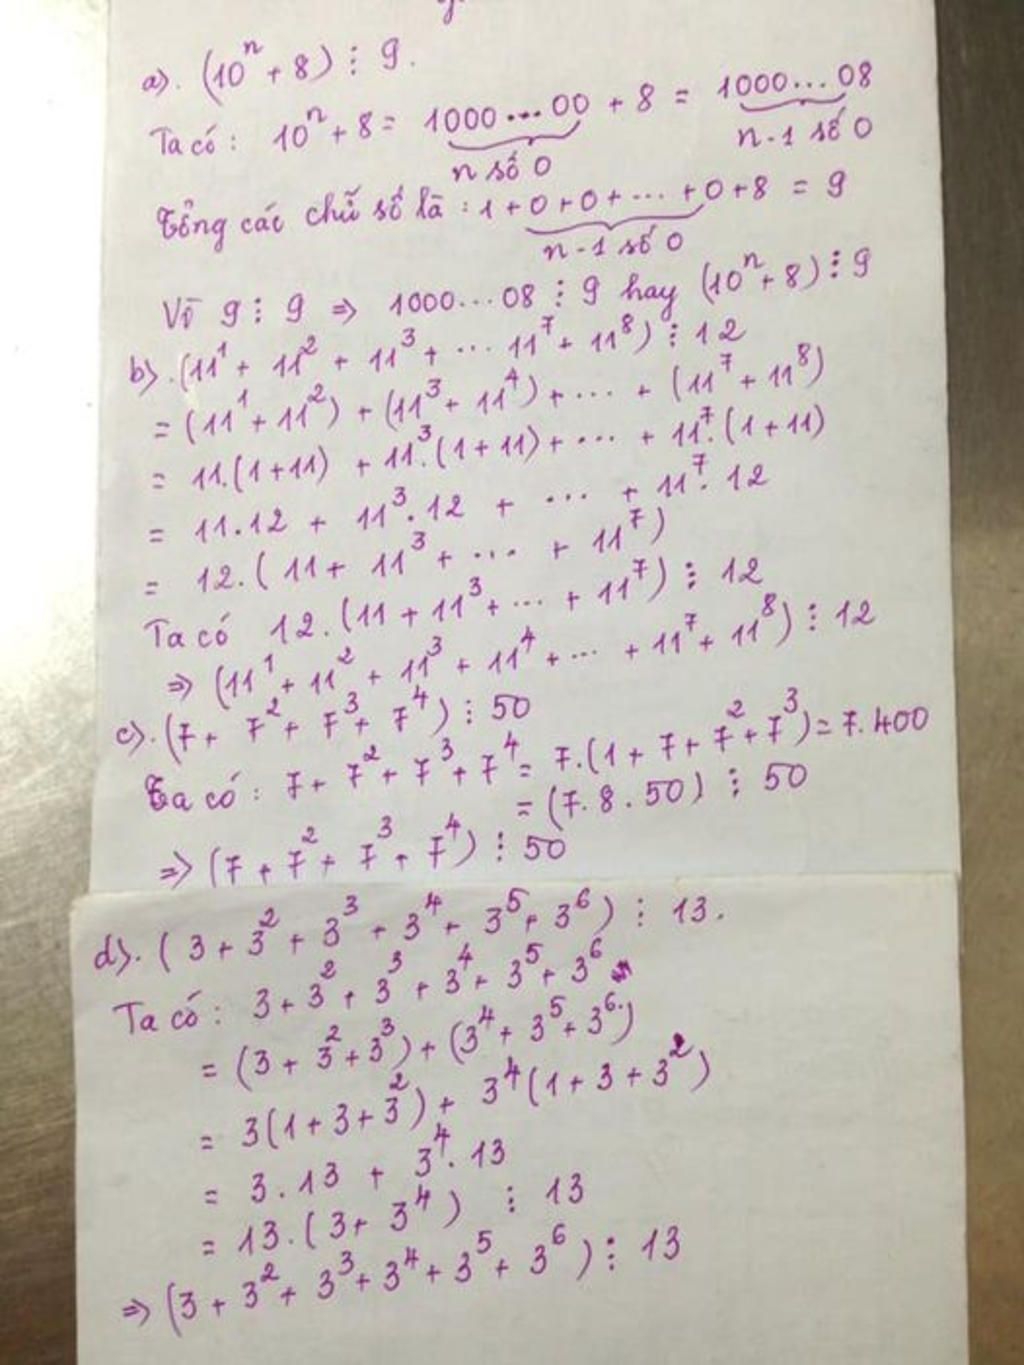 a). (10ⁿ + 8) ⋮ 9.
Ta có : 10ⁿ + 8 = 1000...00 + 8 = 1000...08
n số 0 n-1 số 0
Tổng các chữ số là : 1 + 0 + 0 + ... + 0 + 8 = 9
n-1 số 0
Vì 9 ⋮ 9 => 1000...08 ⋮ 9 hay (10ⁿ + 8) ⋮ 9
b). (11¹ + 11² + 11³ + ... 11⁷ + 11⁸) ⋮ 12
= (11¹ + 11²) + (11³ + 11⁴) + ... + (11⁷ + 11⁸)
= 11.(1+11) + 11³.(1+11) + ... + 11⁷.(1+11)
= 11.12 + 11³.12 + ... + 11⁷.12
= 12.(11 + 11³ + ... + 11⁷)
Ta có 12.(11 + 11³ + ... + 11⁷) ⋮ 12
=> (11¹ + 11² + 11³ + 11⁴ + ... + 11⁷ + 11⁸) ⋮ 12
c). (7 + 7² + 7³ + 7⁴) ⋮ 50
Ta có : 7 + 7² + 7³ + 7⁴ = 7.(1 + 7 + 7² + 7³) = 7.400
= (7.8.50) ⋮ 50
=> (7 + 7² + 7³ + 7⁴) ⋮ 50
d). (3 + 3² + 3³ + 3⁴ + 3⁵ + 3⁶) ⋮ 13.
Ta có : 3 + 3² + 3³ + 3⁴ + 3⁵ + 3⁶
= (3 + 3² + 3³) + (3⁴ + 3⁵ + 3⁶)
= 3(1 + 3 + 3²) + 3⁴(1 + 3 + 3²)
= 3.13 + 3⁴.13
= 13.(3 + 3⁴) ⋮ 13
=> (3 + 3² + 3³ + 3⁴ + 3⁵ + 3⁶) ⋮ 13